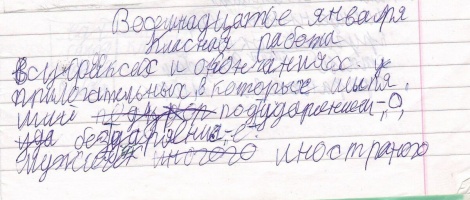 Восемнадцатое января
Класная работа
В суффиксах и окончаниях. у
прилагательных в которых
шипе под ударением-О,
без ударения-е.
Мужского иностранно